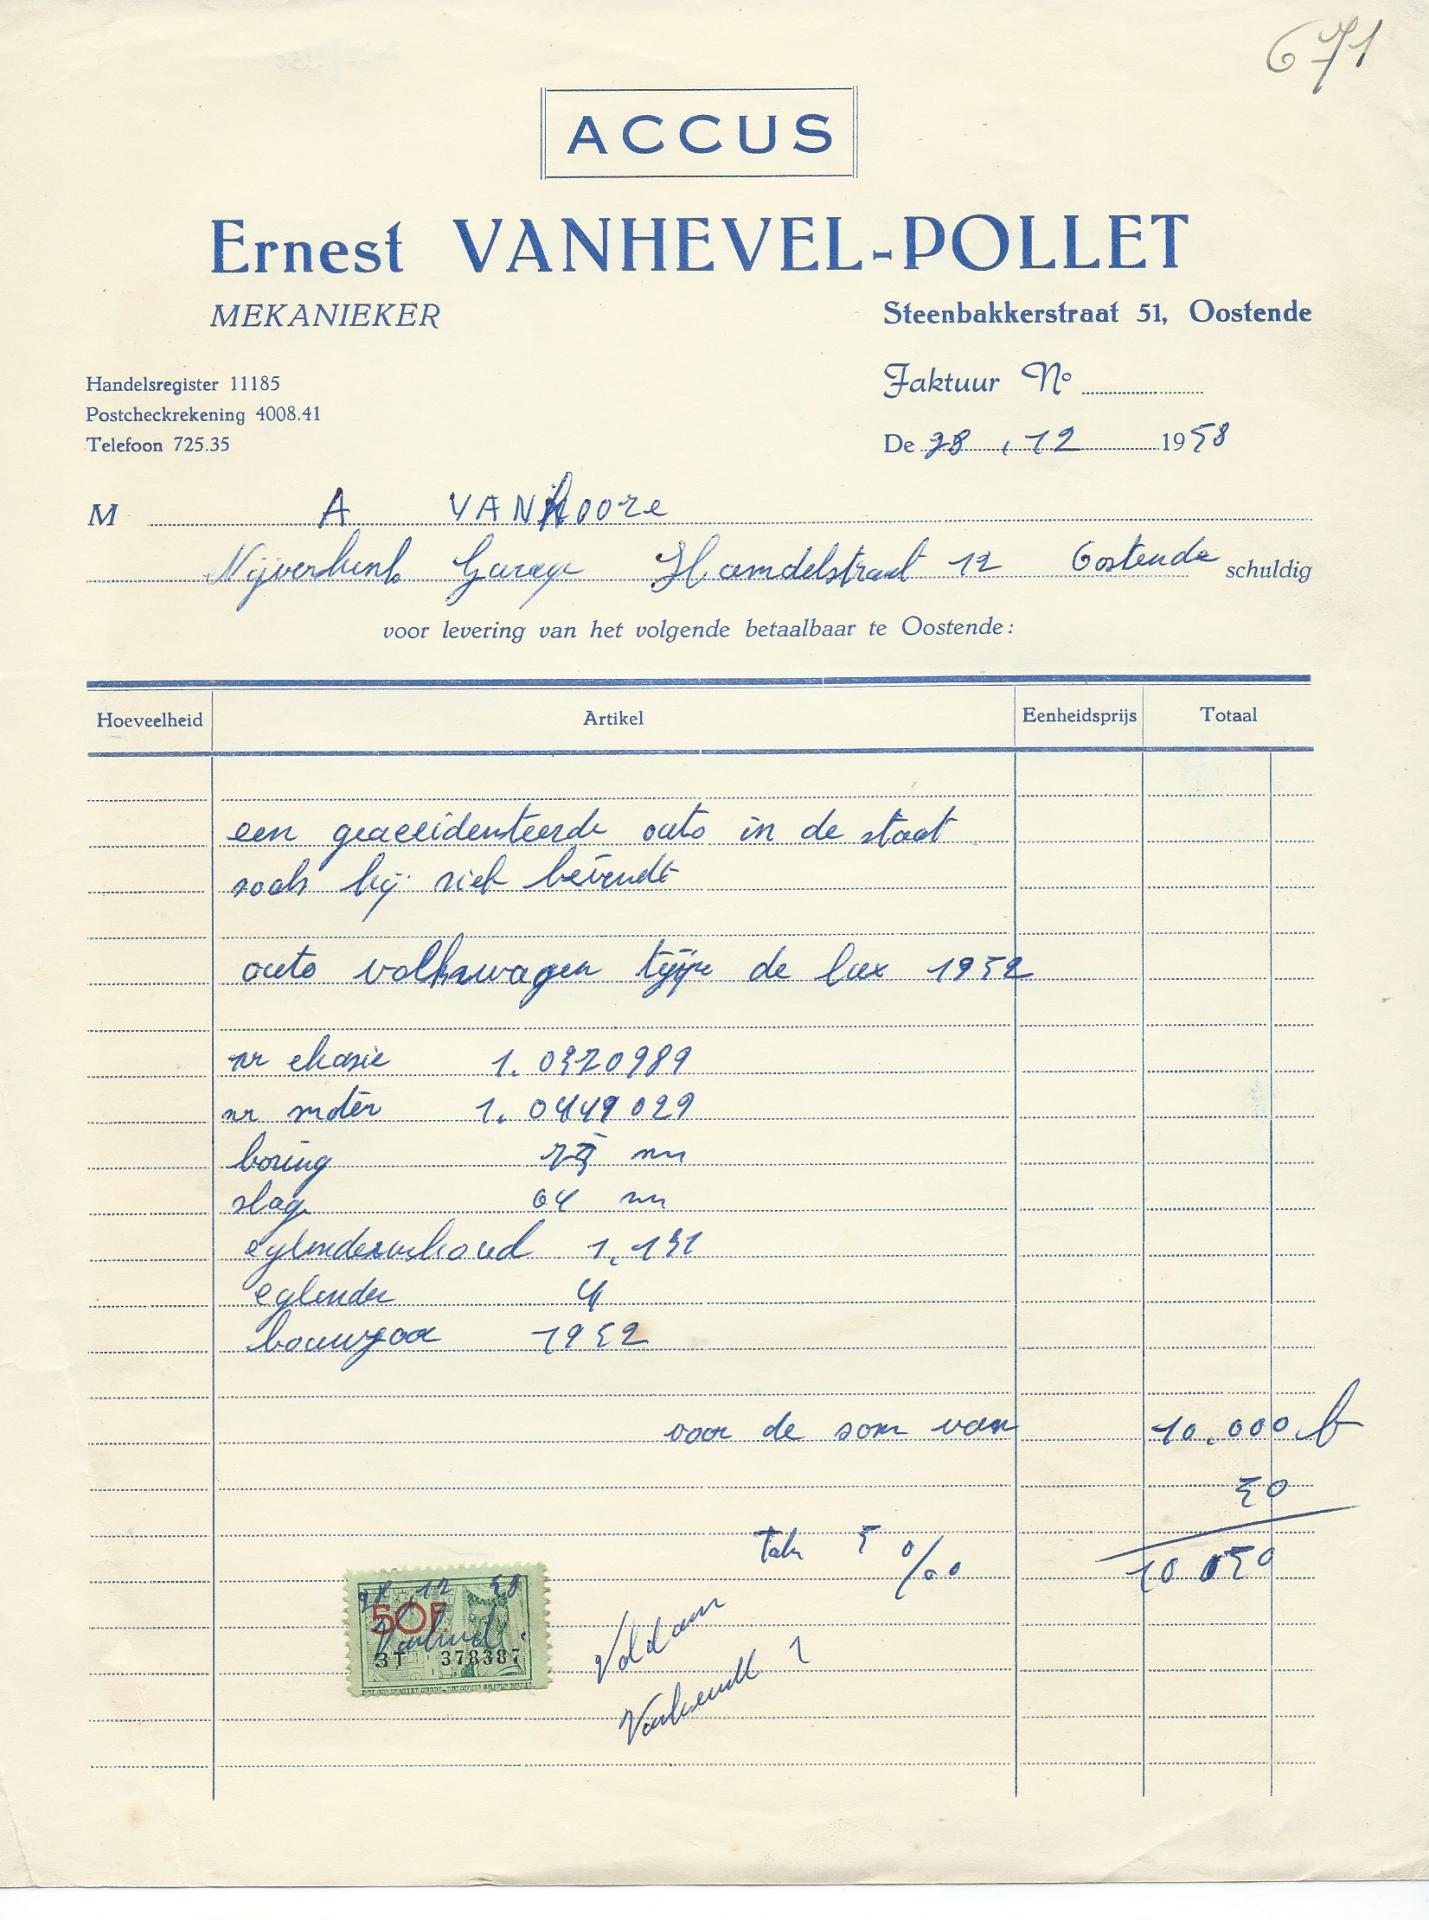 671
ACCUS
Ernest VANHEVEL-POLLET
MEKANIEKER
Steenbakkerstraat 51, Oostende
Handelsregister 11185
Postcheckrekening 4008.41
Telefoon 725.35
Faktuur No
De 28 . 12 1958
M A VANhoore
Garage Handelstraat 12 Oostende schuldig
voor levering van het volgende betaalbaar te Oostende:
Hoeveelheid Artikel Eenheidsprijs Totaal
een geaccidenteerde auto in de staat
soals hij zich bevindt
auto volkswagen type de lux 1952
nr chasie 1. 0320989
nr motor 1. 0449029
boring 75 mm
slag 64 mm
cylinderinhoud 1,131
cylinder 4
bouwjaar 1952
voor de som van 10.000 fr
50
taks 5 o/oo 10 050
28 12 58
50F
3T 378387
Voldaan